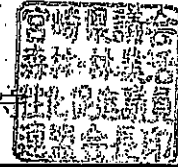 宮崎県議会
森林・林業
活性化促進議員
連盟会長印